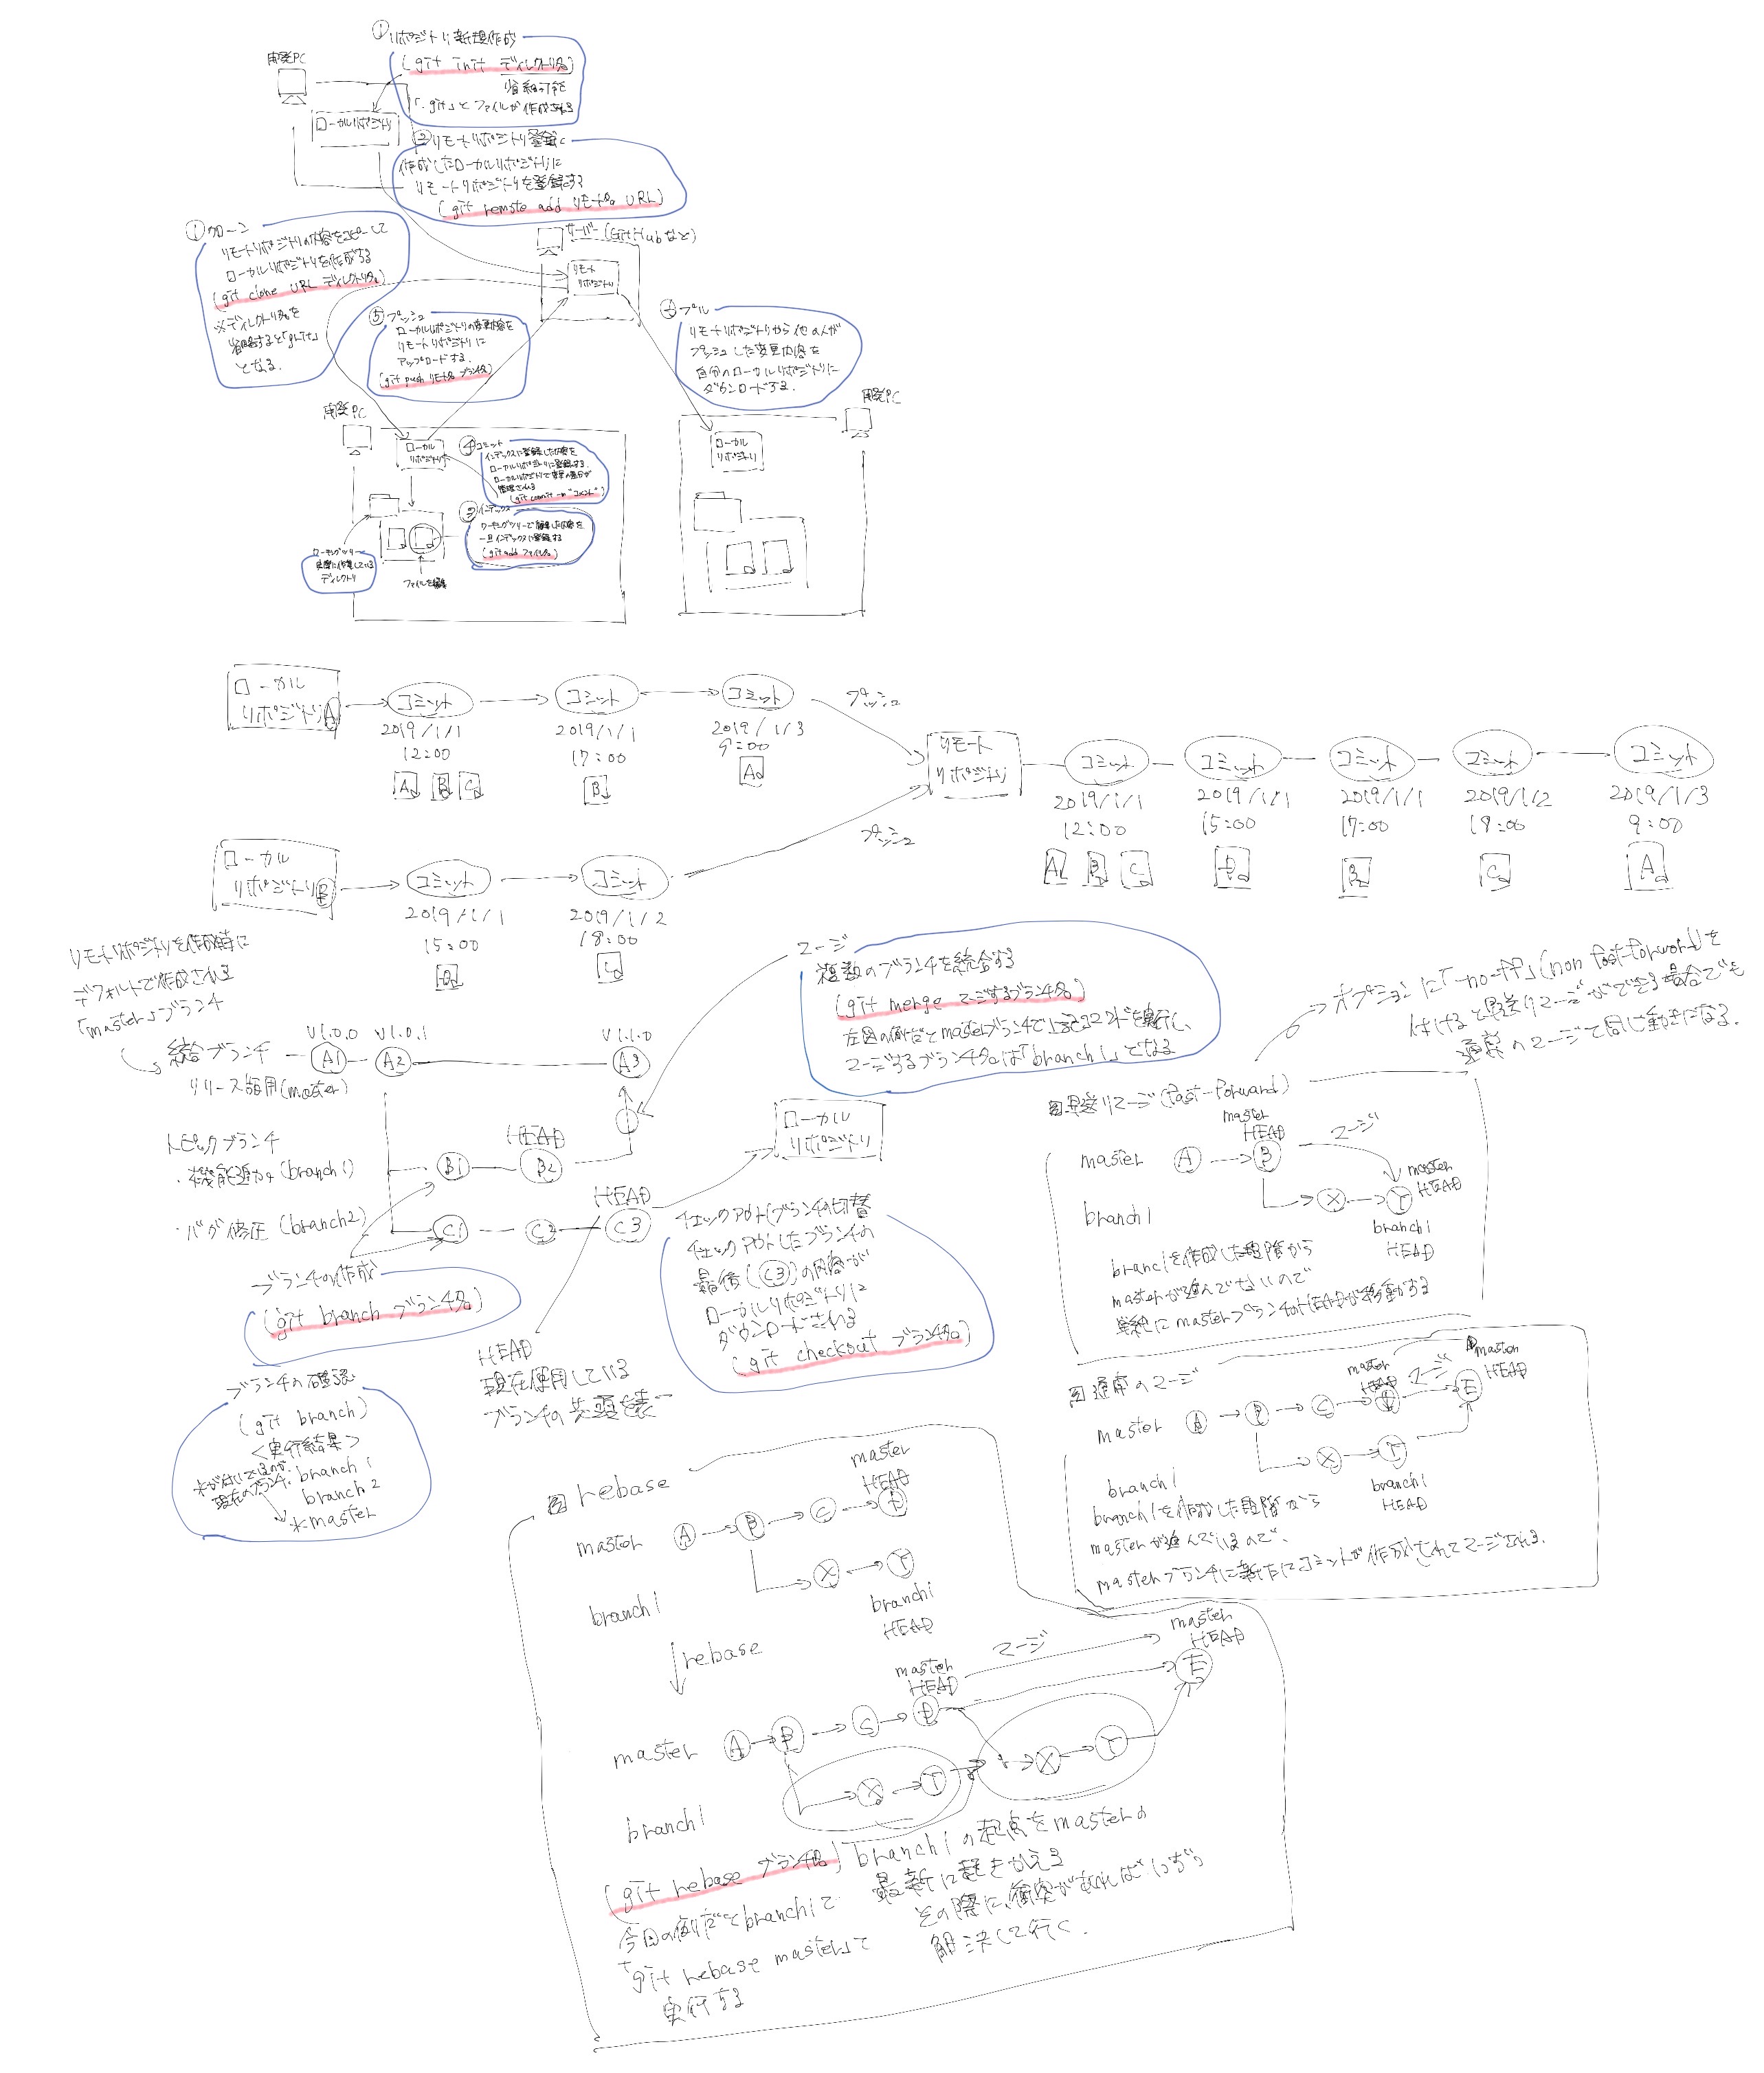 ①リポジトリ新規作成
(git init ディレクトリ名)
省略可能
「.git」とファイルが作成される
開発PC
ローカルリポジトリ
②リモートリポジトリ登録
作成したローカルリポジトリに
リモートリポジトリを登録する
(git remote add リモート名 URL)
①クローン
リモートリポジトリの内容をコピーして
ローカルリポジトリを作成する
(git clone URL ディレクトリ名)
※ディレクトリ名を
省略すると
となる.
サーバー(GitHubなど)
リモート
リポジトリ
⑤プッシュ
ローカルリポジトリの変更内容を
リモートリポジトリに
アップロードする.
(git push リモート名 ブランチ名)
プル
リモートリポジトリから他の人が
プッシュした変更内容を
自分のローカルリポジトリに
ダウンロードする.
開発PC
ローカル
リポジトリ
④コミット
インデックスに登録した内容を
ローカルリポジトリに登録する.
ローカルリポジトリで変更の差分が
管理される
(git commit -m "コメント")
③インデックス
ワーキングツリーで編集した内容を
一旦インデックスに登録する
(git add ファイル名)
ワーキングツリー
実際に作業している
ディレクトリ
ファイルを編集
開発PC
ローカル
リポジトリ
ローカル
リポジトリA
コミット
2019/1/1
12:00
A B C
コミット
2019/1/1
17:00
B
コミット
2019/1/3
9:00
A
プッシュ
ローカル
リポジトリB
コミット
2019/1/1
15:00
D
コミット
2019/1/2
18:00
C
プッシュ
リモート
リポジトリ
コミット
2019/1/1
12:00
A B C
コミット
2019/1/1
15:00
D
コミット
2019/1/1
17:00
B
コミット
2019/1/2
18:00
C
コミット
2019/1/3
9:00
A
リモートリポジトリを作成時に
デフォルトで作成される
「master」ブランチ
統合ブランチ
リリース版用(master)
V1.0.0 V1.0.1 V1.1.0
A1 A2 A3
トピックブランチ
・機能追加(branch1)
B1 B2
HEAD
・バグ修正(branch2)
C1 C2 C3
HEAD
マージ
複数のブランチを統合する
(git merge マージするブランチ名)
左図の例だとmasterブランチで上記コマンドを実行し、
マージするブランチ名は「branch1」となる
ローカル
リポジトリ
チェックアウト(ブランチの切替
チェックアウトしたブランチの
最後(C3)の内容が
ローカルリポジトリに
ダウンロードされる
(git checkout ブランチ名)
ブランチの作成
(git branch ブランチ名)
HEAD
現在使用している
ブランチの先頭を表
ブランチの確認
(git branch)
<実行結果>
*が付いてるのが
現在のブランチ.
branch1
branch2
*master
オプションに「-no-ff」(non fast-forward)を
付けると早送りマージができる場合でも
通常のマージと同じ動きになる.
図早送りマージ(fast-forward)
master
HEAD
マージ
master A B
master
HEAD
X Y
branch1
branch1
HEAD
branchを作成した段階から
masterが進んでないので
単純にmasterブランチのHEADが移動する
図通常のマージ
master
HEAD
マージ
master
HEAD
master A B C D E
X Y
branch1
branch1
HEAD
branch1を作成した段階から
masterが進んでいるので
masterブランチに新たにコミットが作成されてマージされる.
図 rebase
master
HEAD
master A B C D
X Y
branch1
branch1
HEAD
rebase
master
HEAD
マージ
master
HEAD
E
master A B C D
X Y X Y
branch1
(git rebase ブランチ名)
今回の例だとbranch1で
「git rebase master」で
実行する
branch1の起点をmasterの
最新に置きかえる
その際に、衝突があれば
解決して行く.